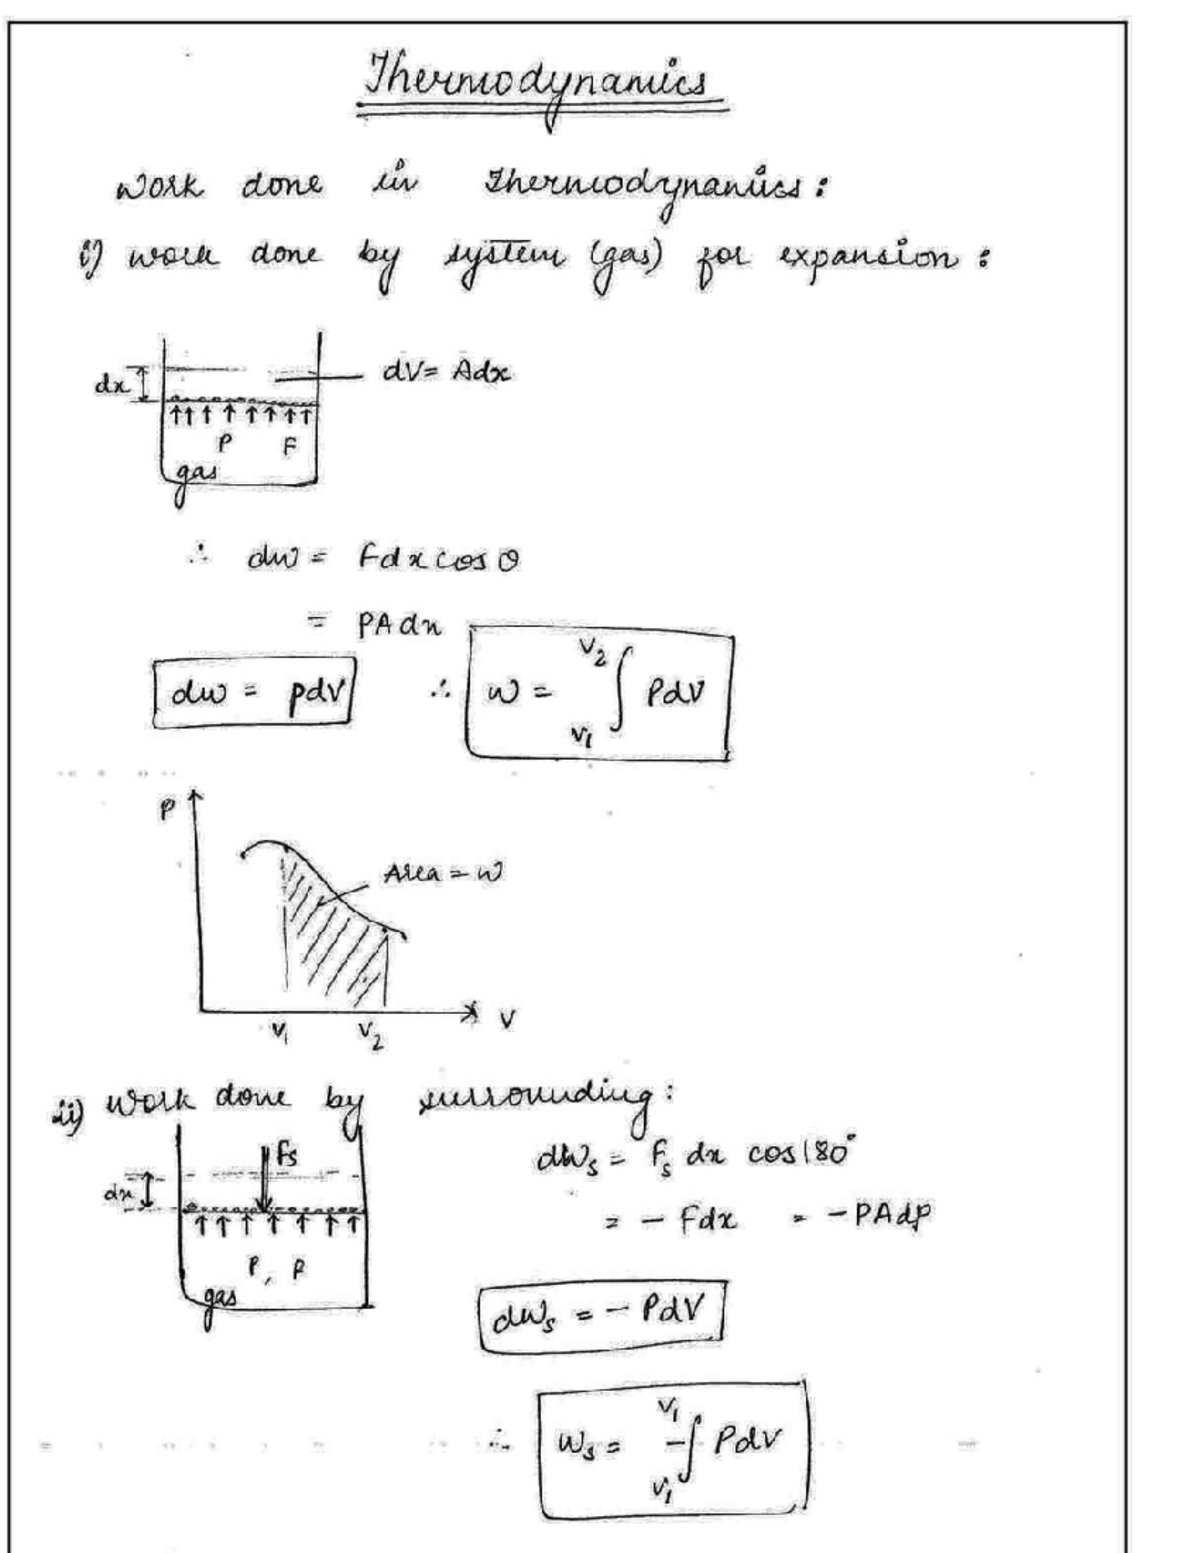 Thermodynamics
work done in thermodynamics:
i) work done by system (gas) for expansion:
dx
dV = Adx
P F
gas
∴ dw = Fdx cos θ
= PAdx
dw = pdV ∴ w = V₁∫V₂ PdV
P
Area = w
V₁ V₂ V
ii) work done by surrounding:
Fs
dWs = Fs dx cos180°
dx
= - Fdx = -PAdp
P, F
gas
dWs = - PdV
∴ Ws = V₁-∫V₁ PdV